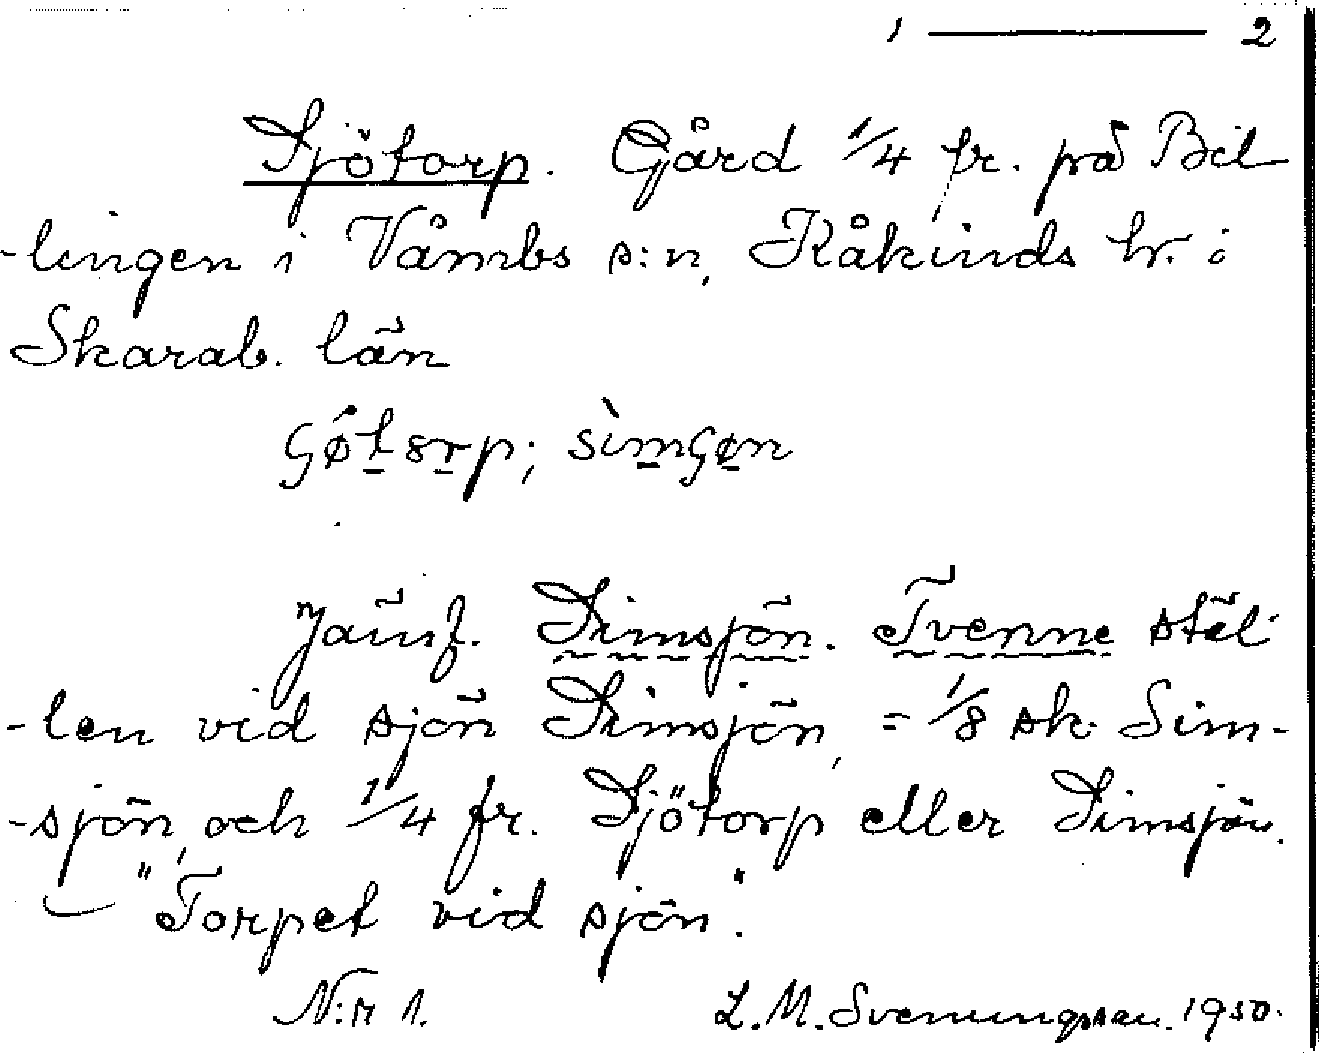 1 ——— 2
Sjötorp. Gård 1/4 fr. på Bil
-lingen i Våmbs s:n, Kåkinds hr. i
Skarab. län
Jämf. Simsjön. Tvenne stäl
-len vid sjön Simsjön, = 1/8 sk. Sim-
-sjön, och 1/4 fr. Sjötorp eller Simsjön.
— "Torpet vid sjön".
N:r 1. L. M. Svenungsson. 1950.